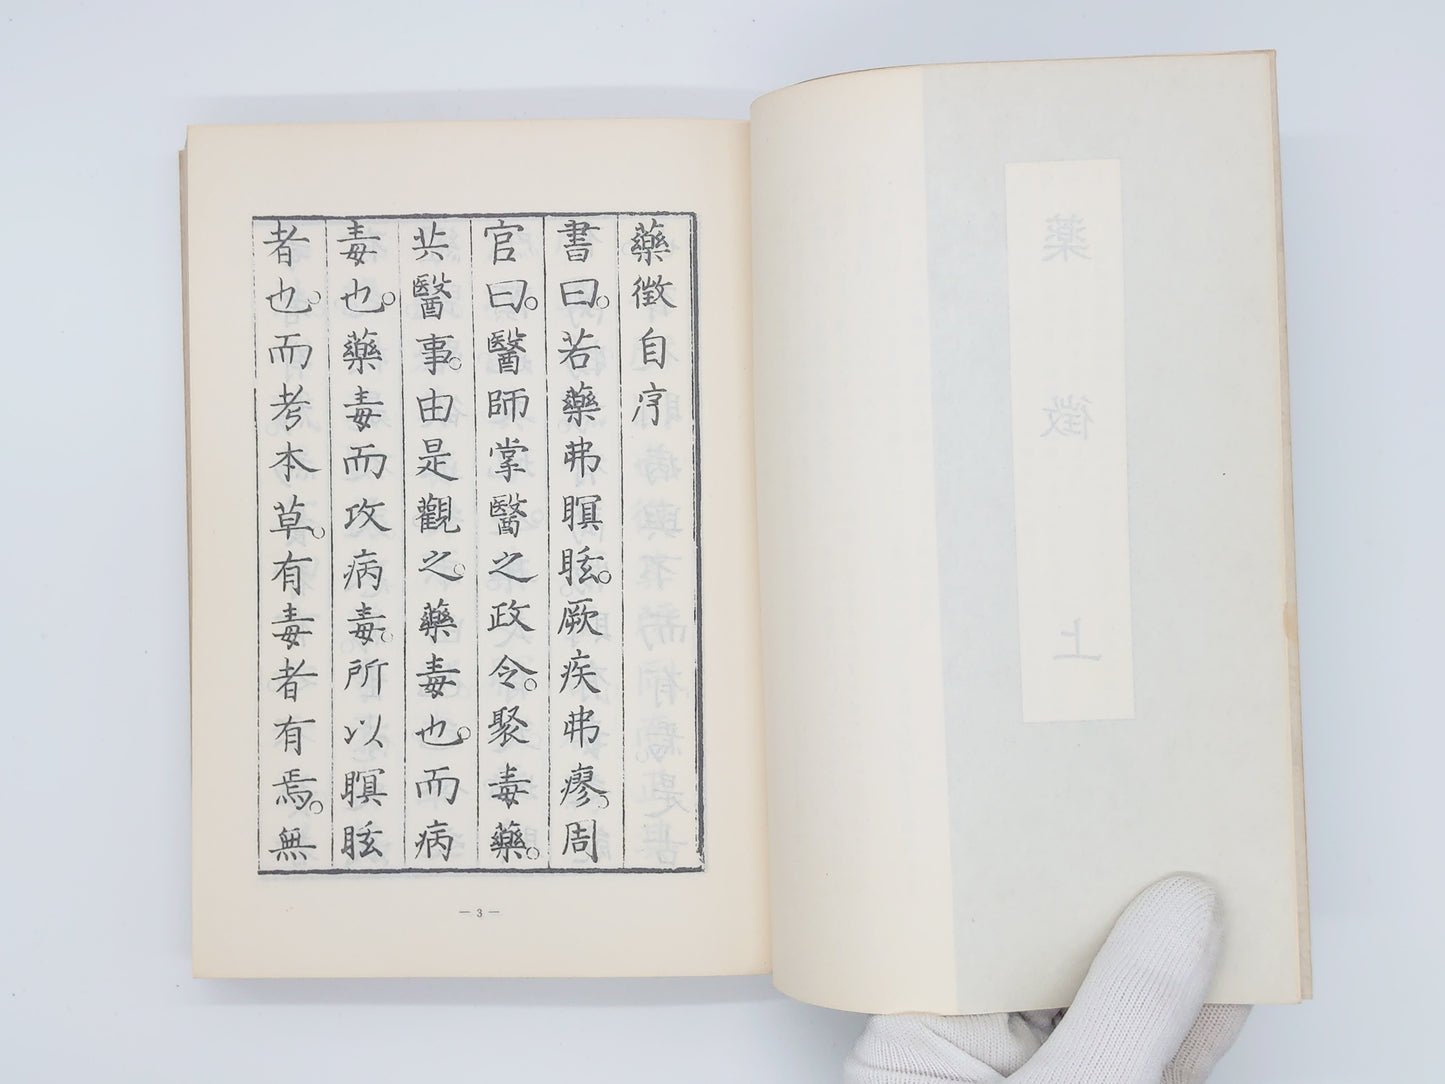 藥徵自序
書曰。若藥弗瞑眩。厥疾弗瘳。周
官曰。醫師掌醫之政令。聚毒藥。
共醫事。由是觀之。藥毒也。而病
毒也。藥毒而攻病毒。所以瞑眩
者也。而考本草。有毒者有焉。無
— 3 —
薬徴上